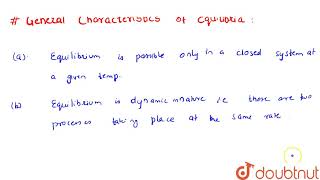 # General Characteristics of Equilibria :
(a). Equilibrium is possible only in a closed system at
a given temp.
(b) Equilibrium is dynamic in nature i.e there are two
processes taking place at the same rate
doubtnut